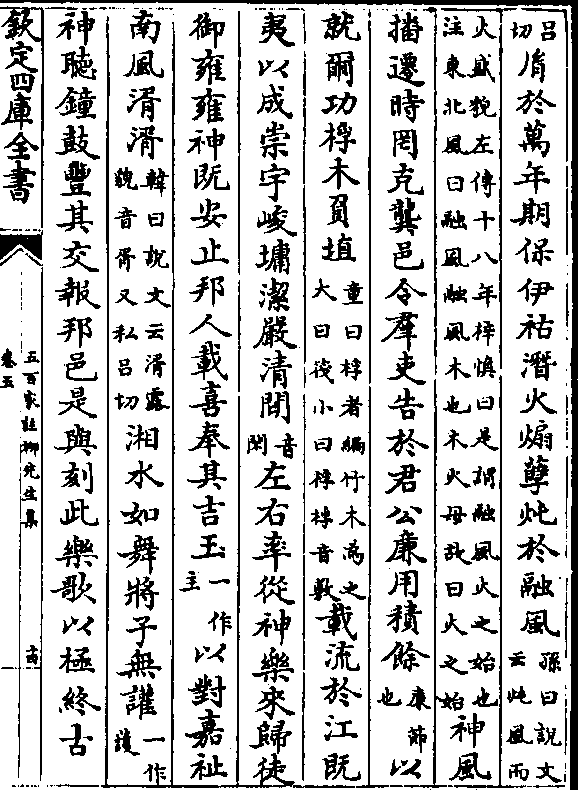 呂切胥於萬年期保伊祜潛火煽孽炖於融風孫曰說文云炖風而
火盛貌左傳十八年梓慎曰是謂融風火之始也注東北風曰融風融風木也木火母故曰火之始神風
播遷時罔克龔邑令羣吏告於君公廉用積餘廉節也以
就爾功桴木負埴童曰桴者編竹木為之大曰筏小曰桴桴音敷載流於江既
夷以成崇宇峻墉潔嚴清閒音閑左右率從神樂來歸徒
御雍雍神既安止邦人載喜奉其吉玉一作主以對嘉祉
南風湑湑韓曰說文云湑露貌音胥又私呂切湘水如舞將子無讙一作讙
神聽鐘鼓豐其交報邦邑是與刻此樂歌以極終古
欽定四庫全書
五百家註柳先生集
卷五
十四